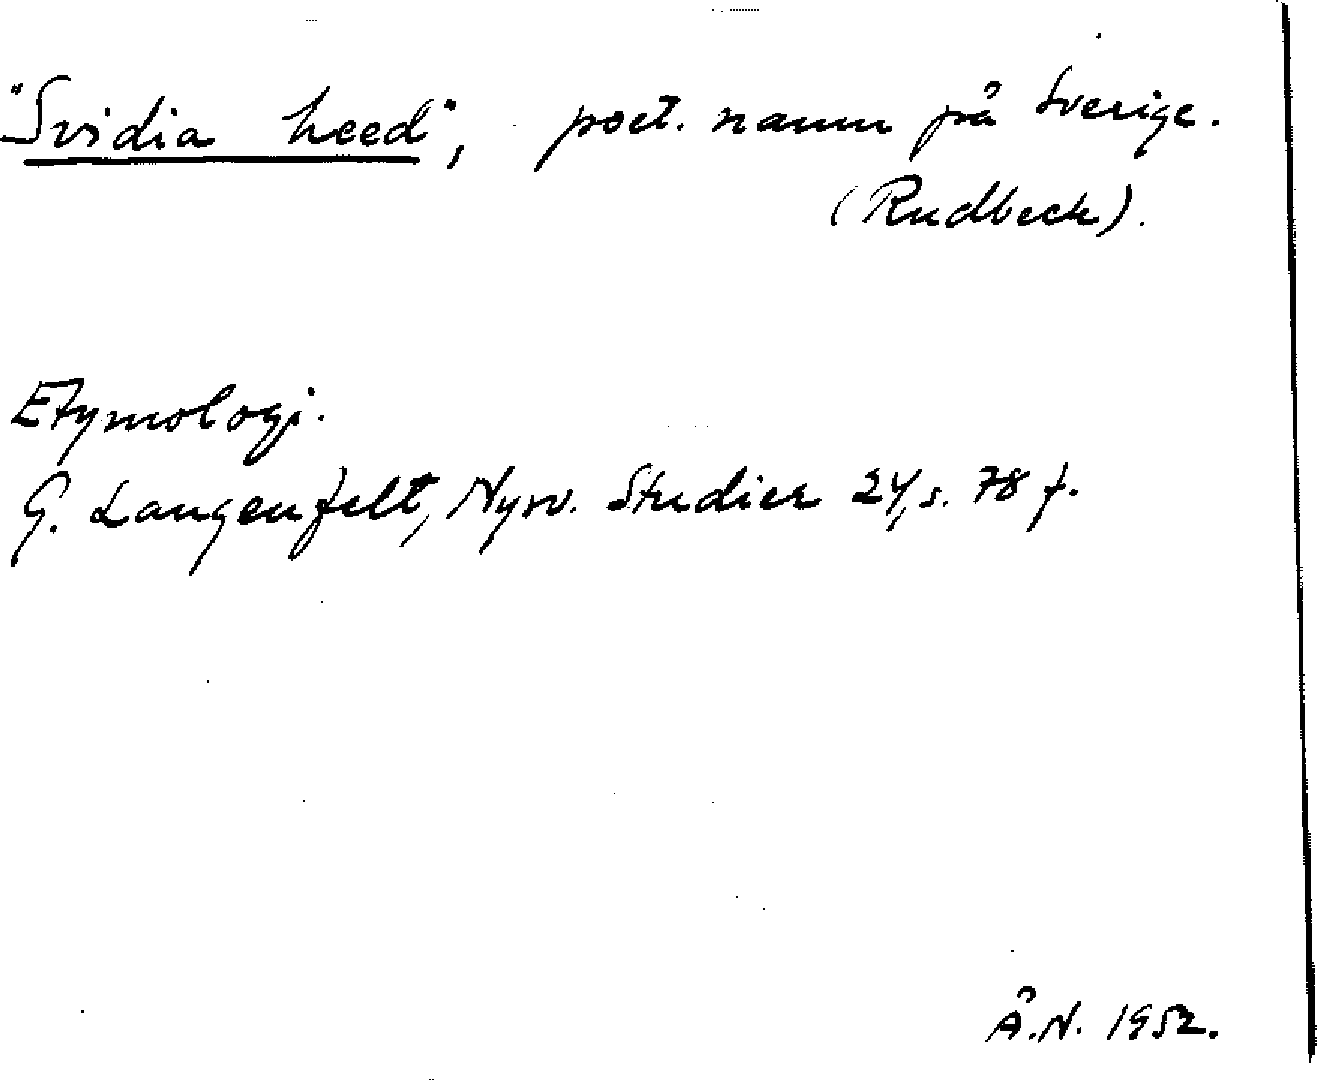 "Svidia heed", poet. namn på Sverige.
(Rudbeck).
Etymologi.
G. Langenfelt, Nysv. Studier 24, s. 78 f.
Å.N. 1952.